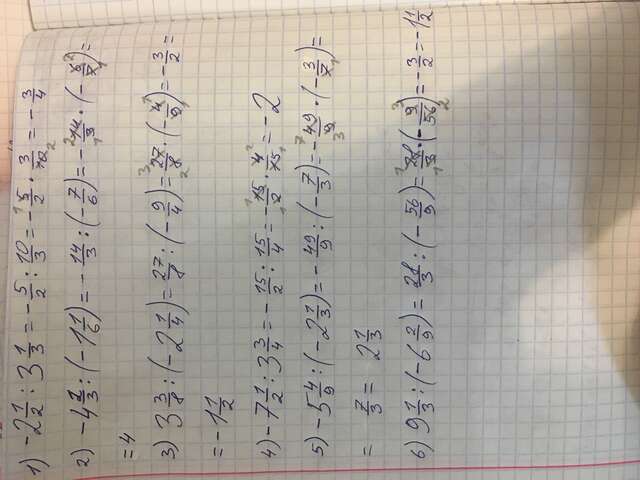 1) -2 1/2 : 3 1/3 = -5/2 : 10/3 = -5/2 · 3/10 = -3/4
2) -4 2/3 : (-1 1/6) = -14/3 : (-7/6) = -14/3 · (-6/7) =
= 4
3) 3 3/8 : (-2 1/4) = 27/8 : (-9/4) = 27/8 · (-4/9) = -3/2 =
= -1 1/2
4) -7 1/2 : 3 3/4 = -15/2 : 15/4 = -15/2 · 4/15 = -2
5) -5 4/9 : (-2 1/3) = -49/9 : (-7/3) = -49/9 · (-3/7) =
= 7/3 = 2 1/3
6) 9 1/3 : (-6 2/9) = 28/3 : (-56/9) = 28/3 · (-9/56) = -3/2 = -1 1/2